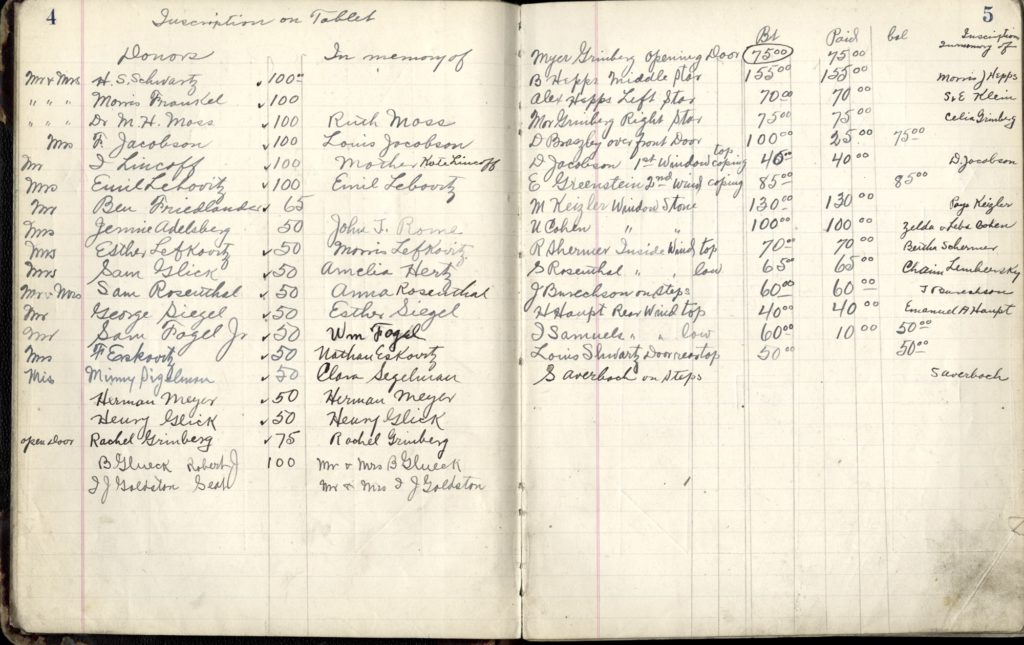 4
Inscription on Tablet
Donors In memory of
Mr & Mrs H. S. Schwartz ✓100.00
" " " Morris Frankel ✓100
" " " Dr M. H. Moss ✓100 Ruth Moss
Mrs F. Jacobson ✓100 Louis Jacobson
Mr I Lincoff ✓100 Mother Kate Lincoff
Mrs Emil Lebovitz ✓100 Emil Lebovitz
Mr Ben Friedlander ✓65
Mrs Jennie Adelsberg 50 John J. Rome
Mrs Esther Lefkovitz ✓50 Morris Lefkovitz
Mrs Sam Glick ✓50 Amelia Hertz
Mr & Mrs Sam Rosenthal ✓50 Anna Rosenthal
Mr George Siegel ✓50 Esther Siegel
Mr Sam Fogel Jr ✓50 Wm Fogel
Mrs F Eskovitz ✓50 Nathan Eskovitz
Miss Minny Sigelman ✓50 Clara Segelman
Herman Meyer ✓50 Herman Meyer
Henry Glick ✓50 Henry Glick
open door Rachel Grinberg ✓75 Rachel Grinberg
B Glueck Robert J 100 Mr & Mrs B Glueck
I J Goldston Seat Mr & Mrs I J Goldston
5
Bt Paid bal Inscription In memory of
Myer Grinberg Opening Door 75.00 75.00
B Hepps Middle Star 155.00 155.00 Morris J Hepps
Alex Hepps Left Star 70.00 70.00 S & E Klein
Mor Grinberg Right Star 75.00 75.00 Celia Grinberg
D Bragley over front Door 100.00 25.00 75.00
D Jacobson 1st Window top coping 40.00 40.00 D. Jacobson
E Greenstein 2nd Wind coping 85.00 85.00
M Keizler Window Stone 130.00 130.00 Keizler
U Cohen " " 100.00 100.00 Zelda & Leba Cohen
R Shermer Inside Wind top 70.00 70.00 Bertha Schermer
S Rosenthal " " low 65.00 65.00 Chaim Lembersky
J Burechson on Steps 60.00 60.00 J Burechson
H Haupt Rear Wind top 40.00 40.00 Emanuel A Haupt
I Samuels " " low 60.00 10.00 50.00
Louis Shwartz Door rear top 50.00 50.00
S Averbach on Steps S Averbach